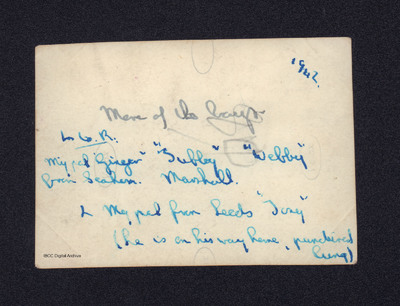 1942.
More of the boys.
L to R.
My pal "Ginger" "Tubby" "Webby"
from Seaham. Marshall.
L My pal from Leeds "Tony"
(he is on his way home, punctured
lung)
IBCC Digital Archive